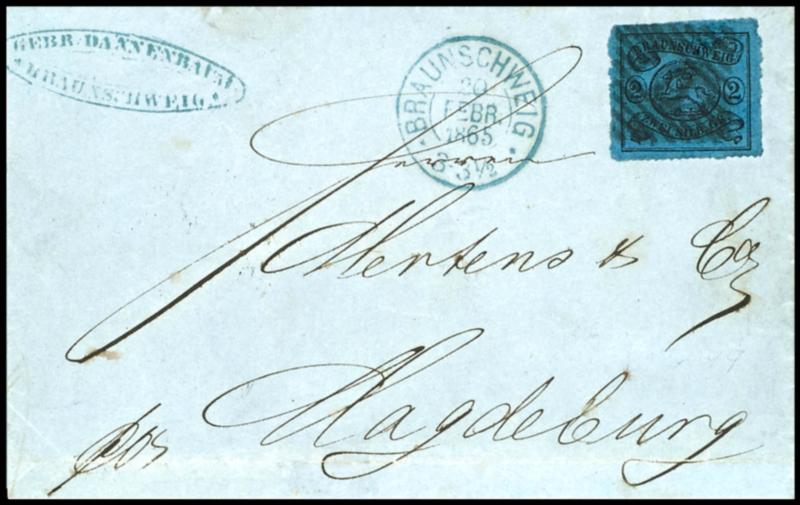 GEBR. DANNENBAUM
BRAUNSCHWEIG
BRAUNSCHWEIG
20
FEBR.
1865
3-3½
BRAUNSCHWEIG
2 2
Herren
Mertens & Co
Magdeburg